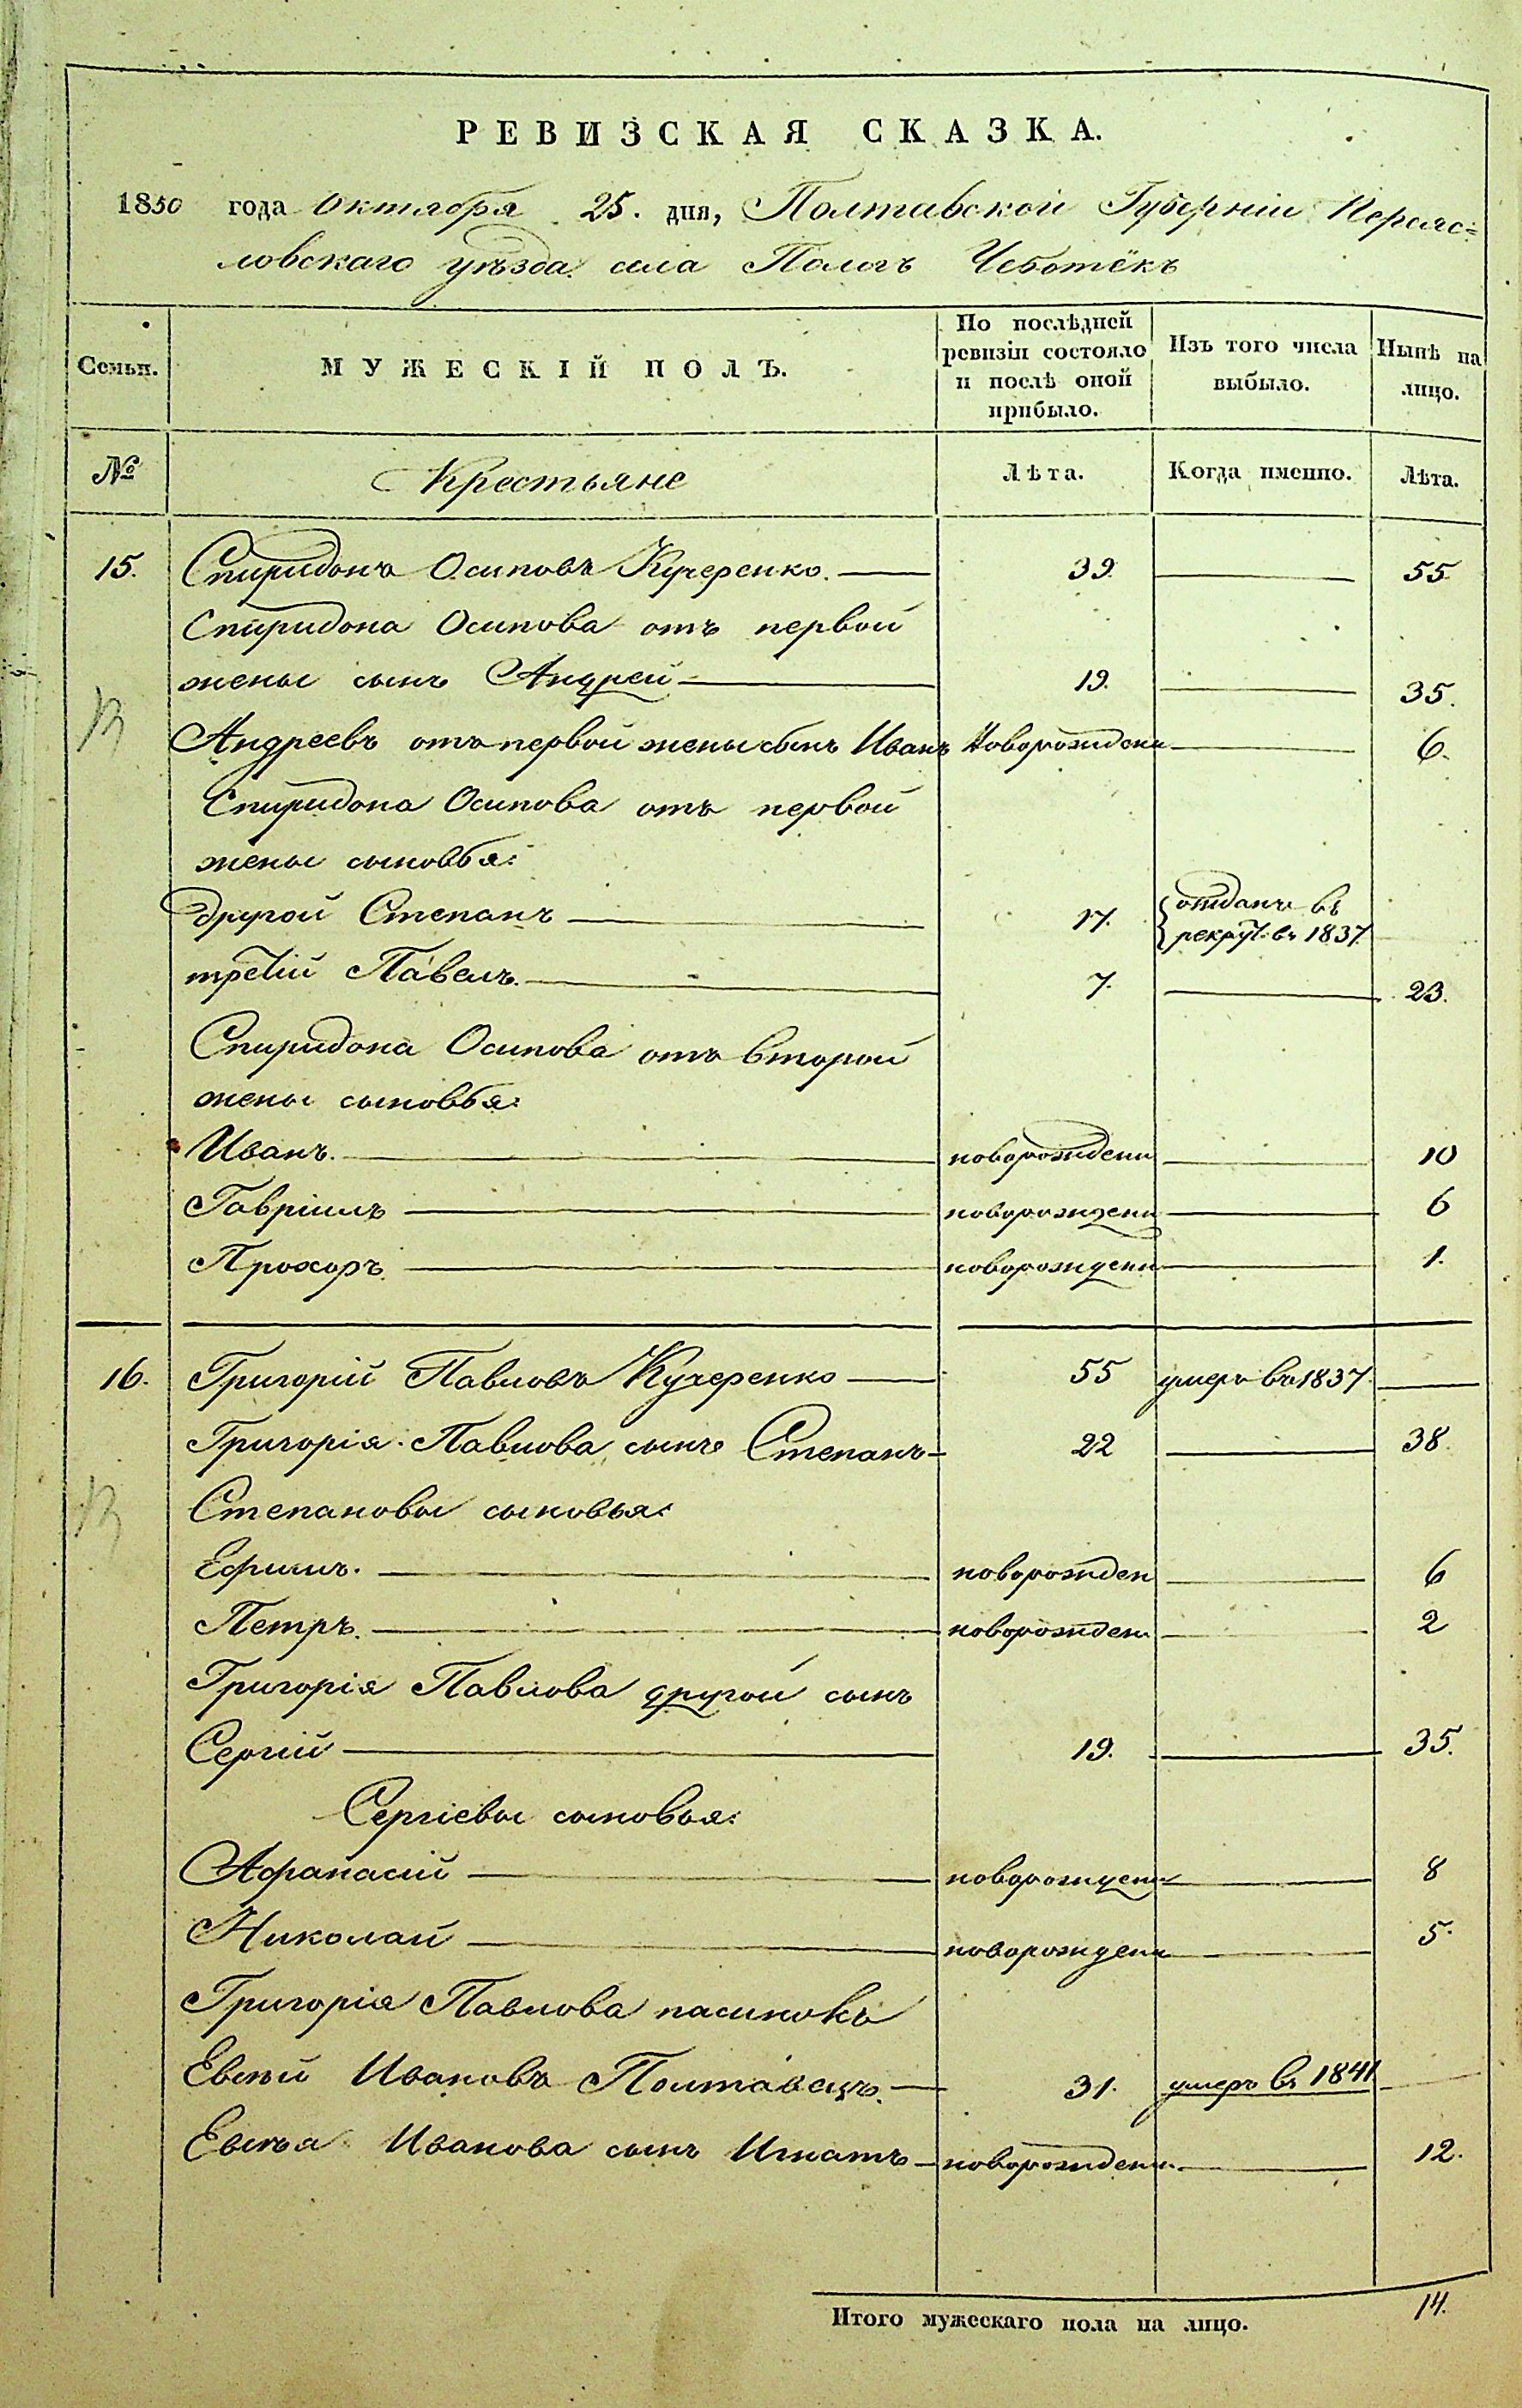 РЕВИЗСКАЯ СКАЗКА.
1850 года Октября 25. дня, Полтавской Губерніи Переяс=
ловскаго уѣзда села Пологъ Чеботёкъ
Семьи.
МУЖЕСКІЙ ПОЛЪ.
По послѣдней
ревизіи состояло
и послѣ оной
прибыло.
Изъ того числа
выбыло.
Нынѣ на
лицо.
№
Крестьяне
Лѣта.
Когда именно.
Лѣта.
15. Спиридонъ Осиповъ Кучеренко. 39. 55.
Спиридона Осипова отъ первой
жены сынъ Андрей 19. 35.
Андреевъ отъ первой жены сынъ Иванъ Новорожденъ 6.
Спиридона Осипова отъ первой
жены сыновья:
другой Степанъ 17. отданъ въ рекрут: въ 1837.
третій Павелъ. 7. 23.
Спиридона Осипова отъ второй
жены сыновья:
Иванъ. новорожденъ 10
Гавріилъ новорожденъ 6
Прохоръ новорожденъ 1.
16. Григорій Павловъ Кучеренко 55 умеръ въ 1837.
Григорія Павлова сынъ Степанъ 22 38.
Степановы сыновья:
Ефимъ. новорожден 6
Петръ. новорожден 2
Григорія Павлова другой сынъ
Сергій 19. 35.
Сергіевы сыновья:
Афанасій новорожденъ 8
Николай новорожденъ 5.
Григорія Павлова пасинокъ
Евсѣй Ивановъ Полтавецъ. 31. умеръ въ 1841
Евсѣя Иванова сынъ Игнатъ новорожденъ 12.
Итого мужескаго пола на лицо. 14.